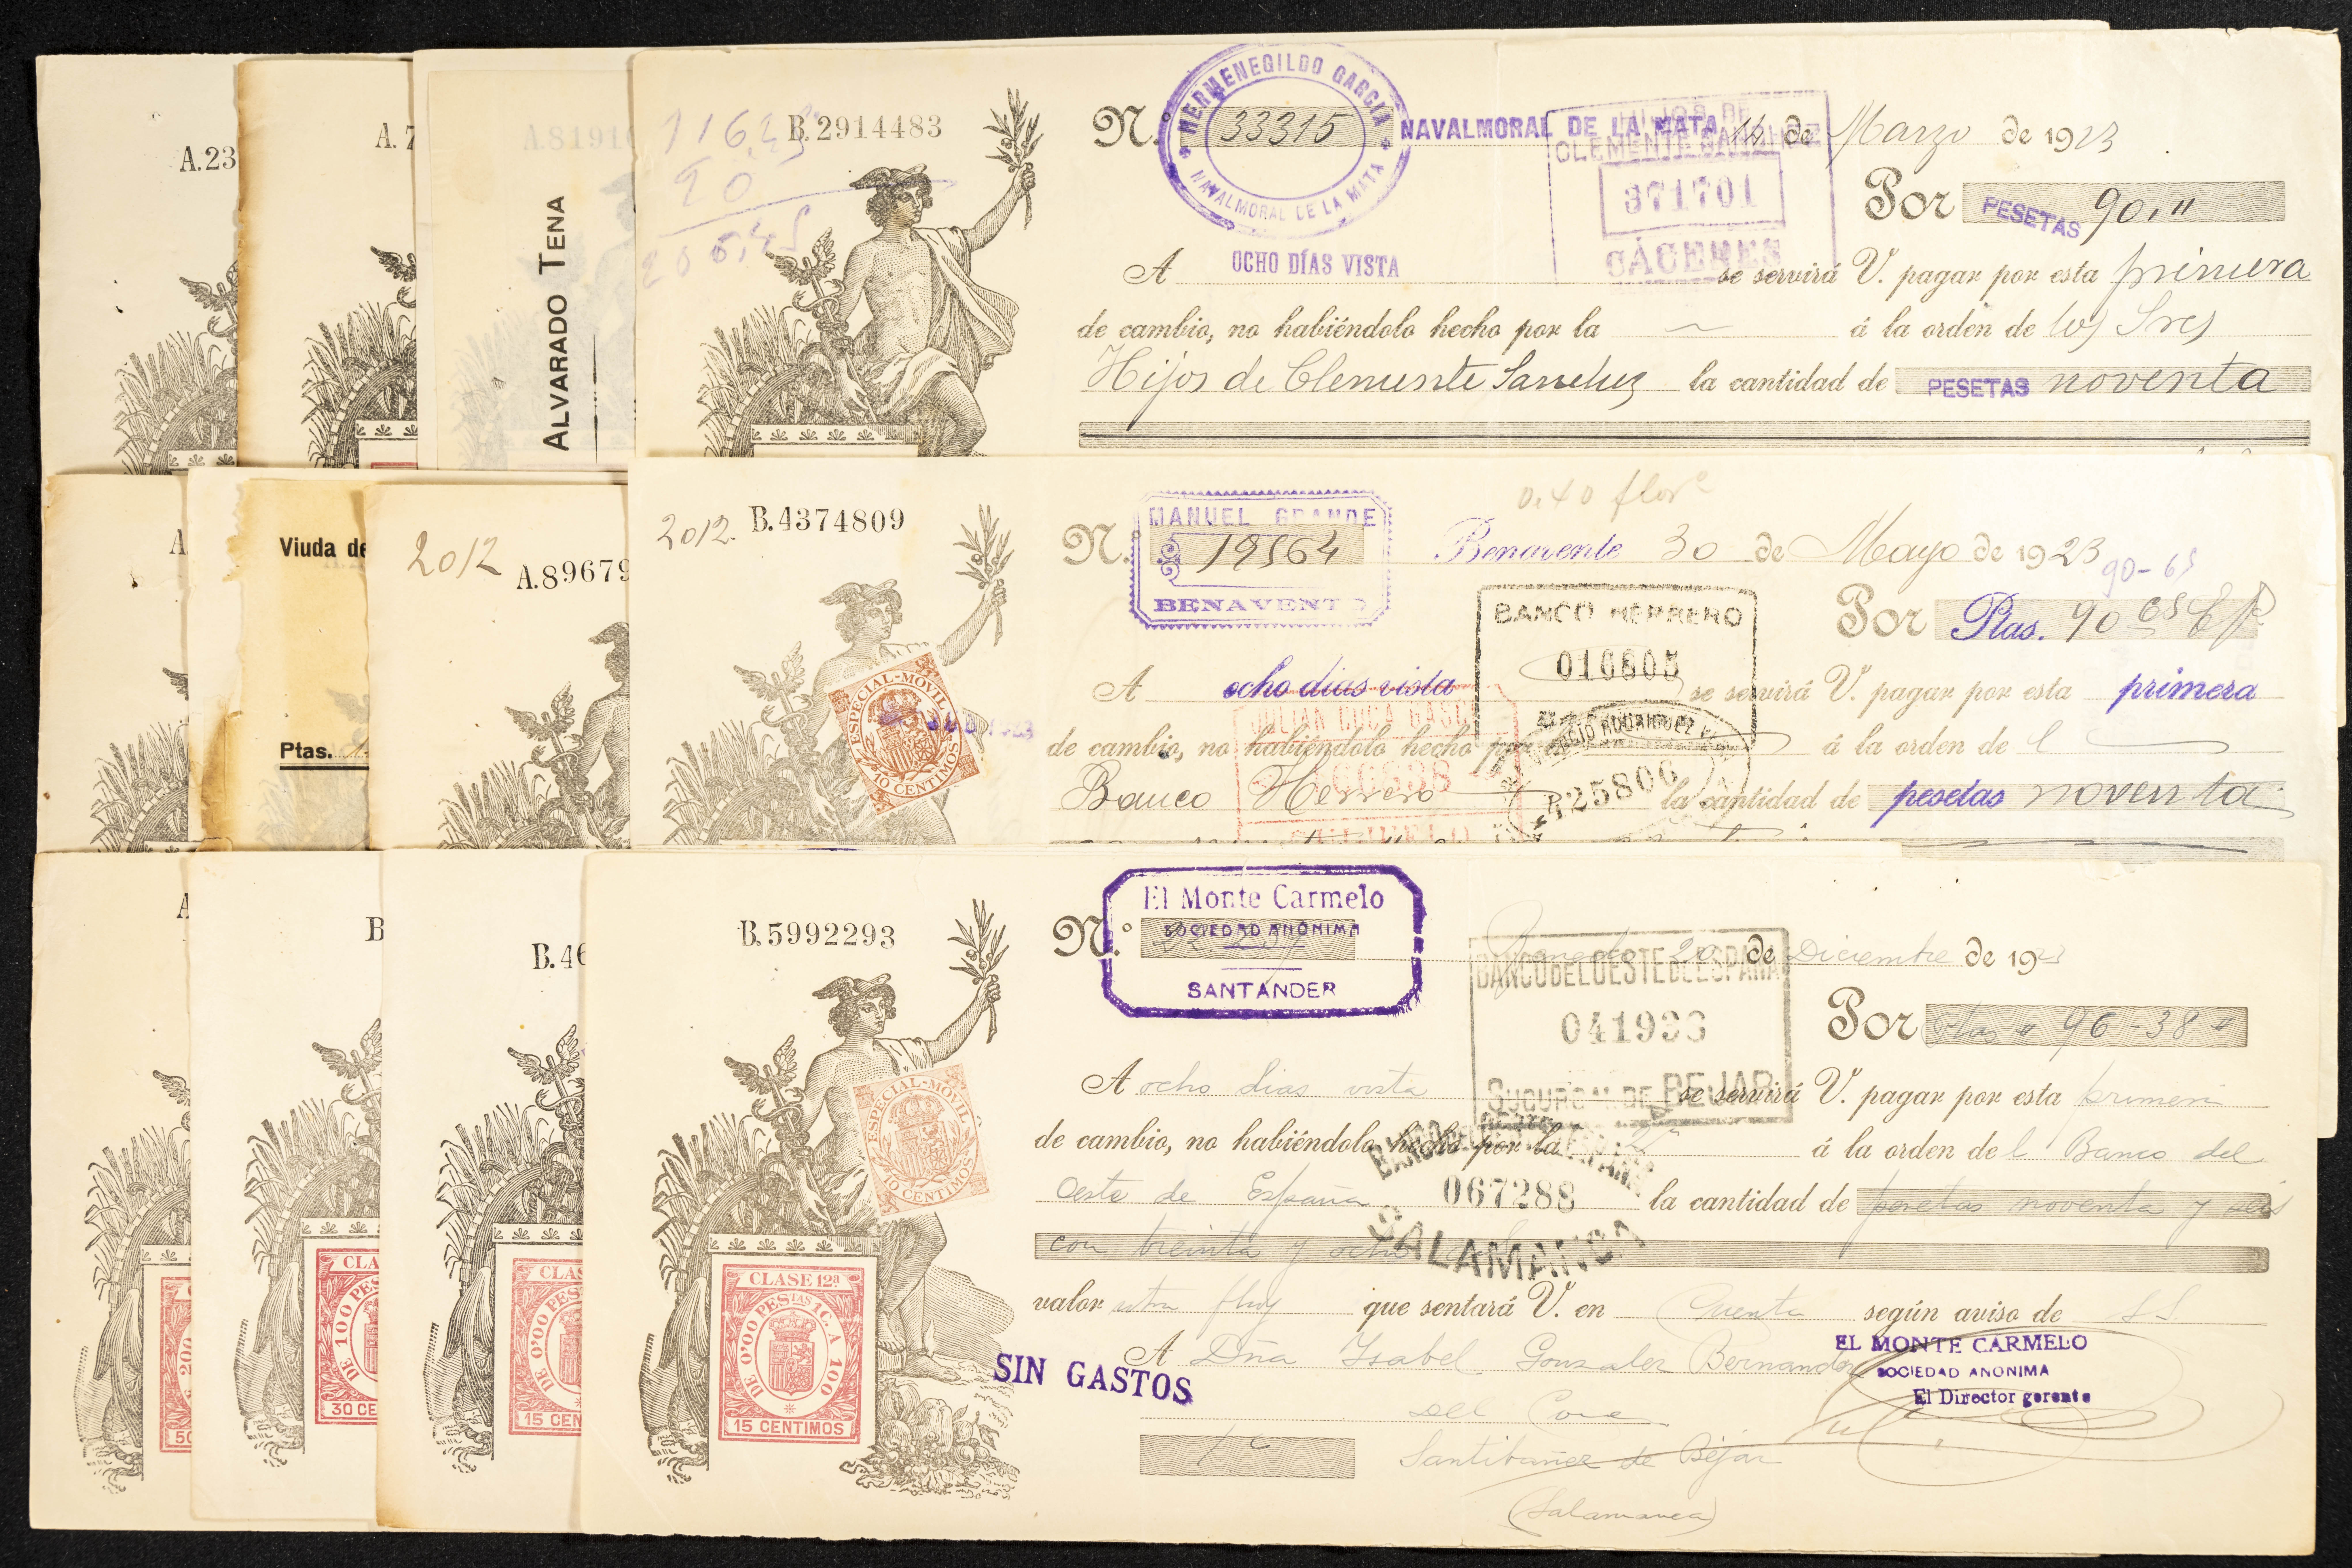 A.23
A.7
A.8191
ALVARADO TENA
116,45
90
206,45
B.2914483
N.º 33315
HERMENEGILDO GARCIA
NAVALMORAL DE LA MATA
NAVALMORAL DE LA MATA 14 de Marzo de 1923
HIJOS DE
CLEMENTE SANCHEZ
371701
CÁCERES
Por PESETAS 90,"
A OCHO DÍAS VISTA se servirá V. pagar por esta primera
de cambio, no habiéndolo hecho por la á la orden de los Sres
Hijos de Clemente Sanchez la cantidad de PESETAS noventa
A
Viuda de
Ptas.
2012
A.89679
2012. B.4374809
ESPECIAL-MOVIL
10 CENTIMOS
0.40
MANUEL GRANDE
BENAVENTE
N.º 19564 Benavente 30 de Mayo de 1923
90-65
BANCO HERRERO
016605
Por Ptas. 90 65
A ocho dias vista se servirá V. pagar por esta primera
JULIAN COCA GASC
RODRIGUEZ
425806
de cambio, no habiéndolo hecho por á la orden de l
Banco Herrero la cantidad de pesetas noventa
A
B
B.46
DE 100 PE
30 CE
DE 0'00 PES
15 CEN
B.5992293
ESPECIAL-MOVIL
10 CENTIMOS
CLASE 12ª
DE 0'00 PESTAS 1C. A 100
15 CENTIMOS
El Monte Carmelo
SOCIEDAD ANÓNIMA
SANTANDER
N.º 20 de Diciembre de 1923
BANCO DEL OESTE DE ESPAÑA
041933
SUCURSAL DE BEJAR
Por Ptas " 96-38 "
A ocho dias vista se servirá V. pagar por esta primera
de cambio, no habiéndolo hecho por la 2ª á la orden de l Banco del
067288
SALAMANCA
Oeste de España la cantidad de pesetas noventa y seis
con treinta y ocho
valor que sentará V. en Cuenta según aviso de S.S.
EL MONTE CARMELO
SOCIEDAD ANONIMA
El Director gerente
A Dña Isabel Gonzalez Bernandez
SIN GASTOS
Santibañez de Béjar
(Salamanca)